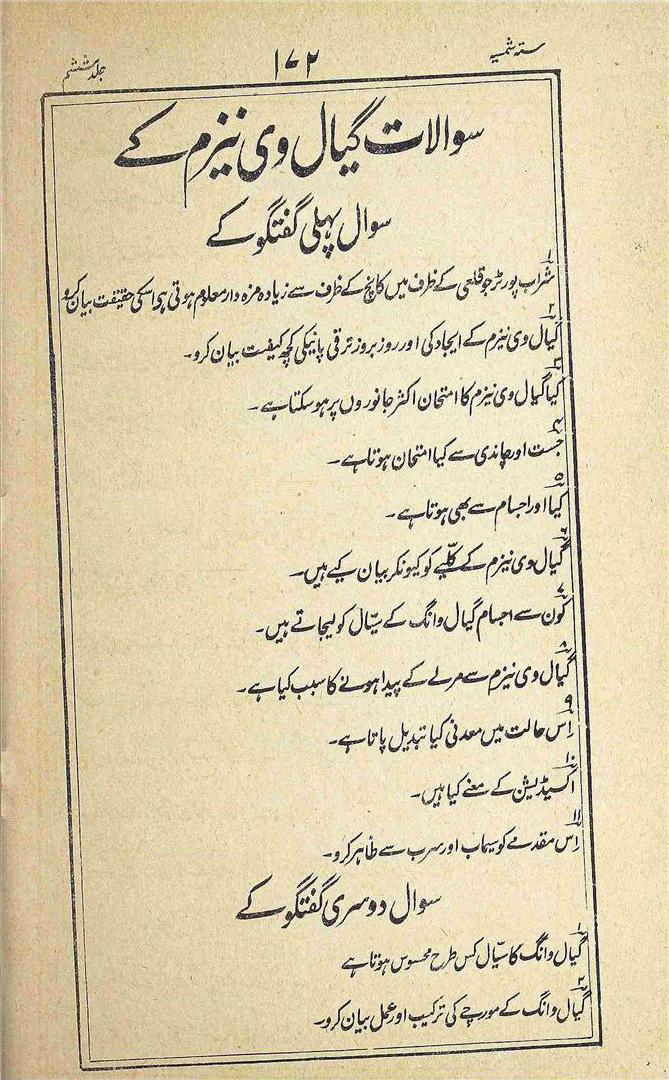 ستہ شمسیہ
۱۷۲
جلد ششم
سوالات گیال وی نیزم کے
سوال پہلی گفتگو کے
۱
شراب پورٹر جو قلعی کے ظرف میں کانچ کے ظرف سے زیادہ مزہ دار معلوم ہوتی ہی اسکی حقیقت بیان کرو
۲
گیال وی نیزم کے ایجاد کی اور روز بروز ترقی پانیکی کچھ کیفیت بیان کرو۔
۳
کیا گیال وی نیزم کا امتحان اکثر جانوروں پر ہو سکتا ہے۔
۴
جست اور چاندی سے کیا امتحان ہوتا ہے۔
۵
کیا اور اجسام سے بھی ہوتا ہے۔
۶
گیال وی نیزم کے کلّیے کو کیونکر بیان کیے ہیں۔
۷
کون سے اجسام گیال وانگ کے سیّال کو لیجاتے ہیں۔
۸
گیال وی نیزم سے مرلے کے پیدا ہونے کا سبب کیا ہے۔
۹
اس حالت میں معدنی کیا تبدیل پاتا ہے۔
۱۰
اکسیڈیشن کے معنے کیا ہیں۔
۱۱
اس مقدمے کو سیماب اور سرب سے ظاہر کرو۔
سوال دوسری گفتگو کے
۱
گیال وانگ کا سیّال کس طرح محسوس ہوتا ہے
۲
گیال وانگ کے مورچے کی ترکیب اور عمل بیان کرو۔